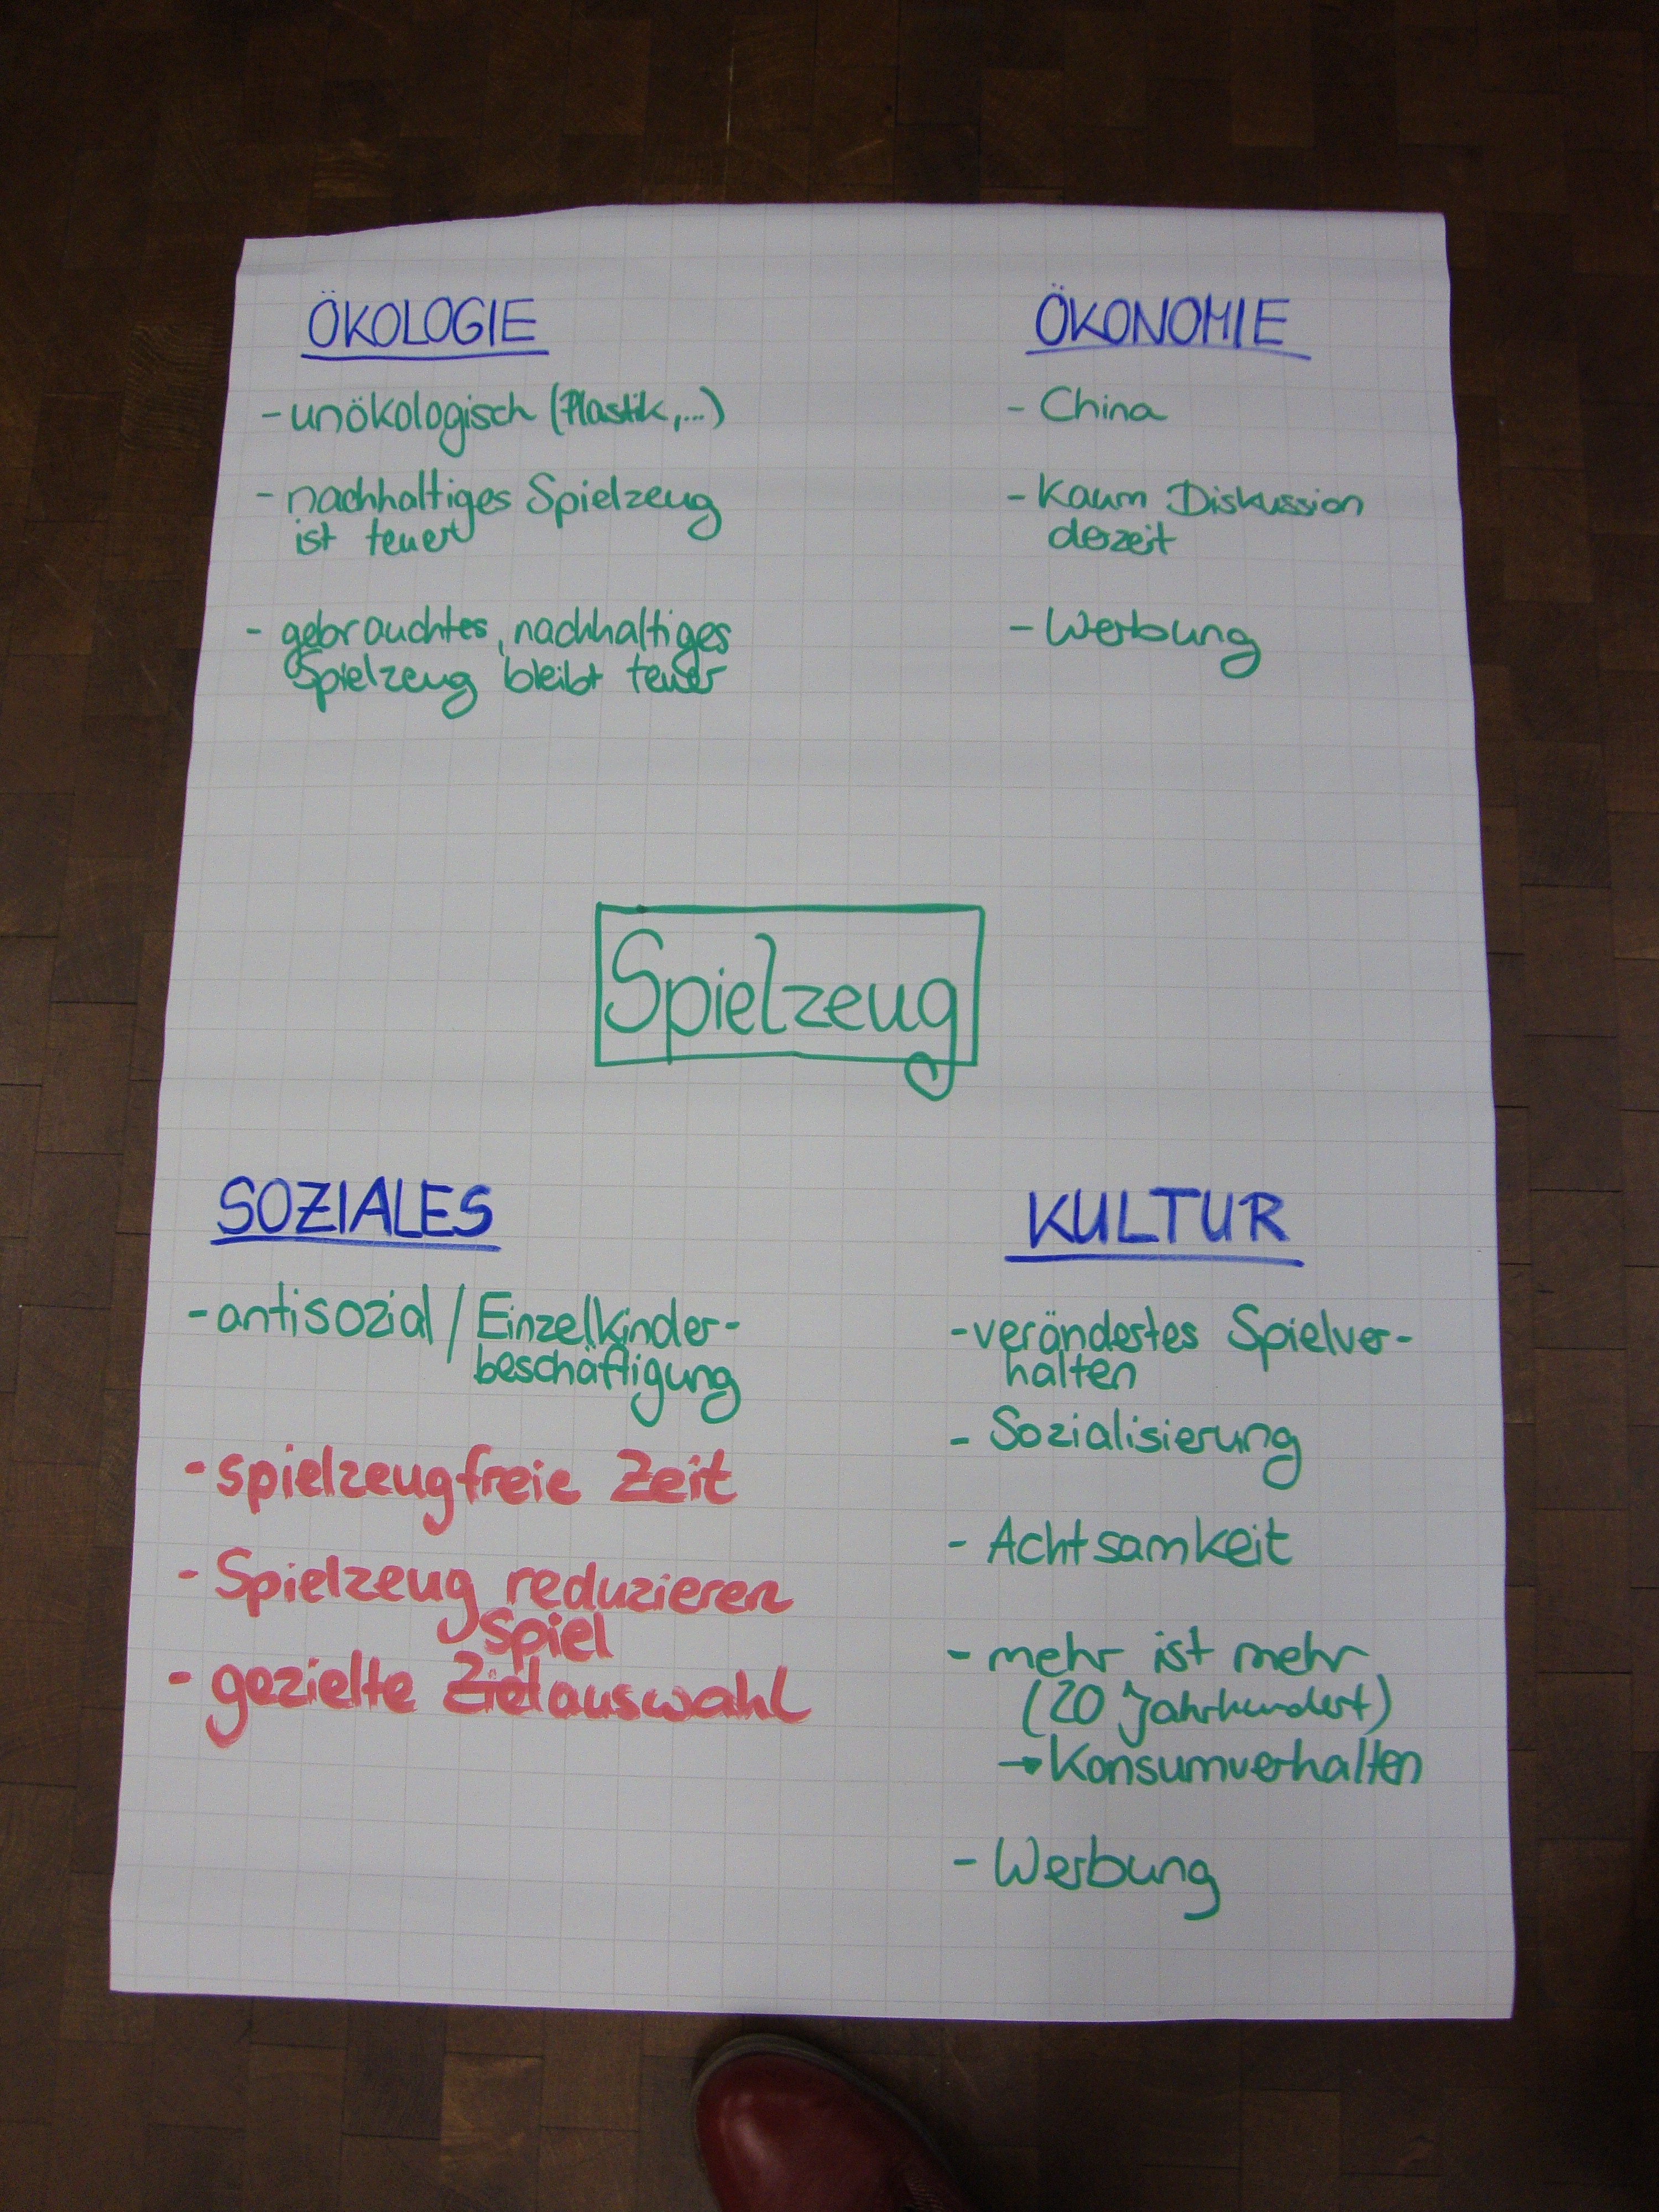 ÖKOLOGIE
- unökologisch (Plastik,...)
- nachhaltiges Spielzeug
ist teuer
- gebrauchtes, nachhaltiges
Spielzeug bleibt teuer
ÖKONOMIE
- China
- Kaum Diskussion
derzeit
- Werbung
Spielzeug
SOZIALES
- antisozial / Einzelkinder-
beschäftigung
- spielzeugfreie Zeit
- Spielzeug reduzieren
spiel
- gezielte Zielauswahl
KULTUR
- verändertes Spielver-
halten
- Sozialisierung
- Achtsamkeit
- mehr ist mehr
(20 Jahrhundert)
→ Konsumverhalten
- Werbung